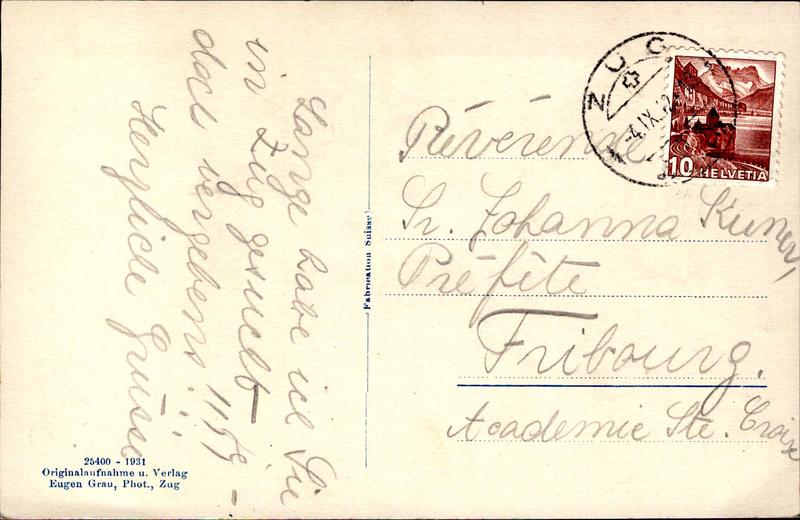 Lange habe ich Sie
in Zug gesucht –
doch vergebens!
Herzliche Grüsse
25400 - 1931
Originalaufnahme u. Verlag
Eugen Grau, Phot., Zug
Fabrication Suisse
ZUG
-4.IX.
10 HELVETIA
Révérende
Sr. Johanna
Préfète
Fribourg.
Academie Ste. Croix